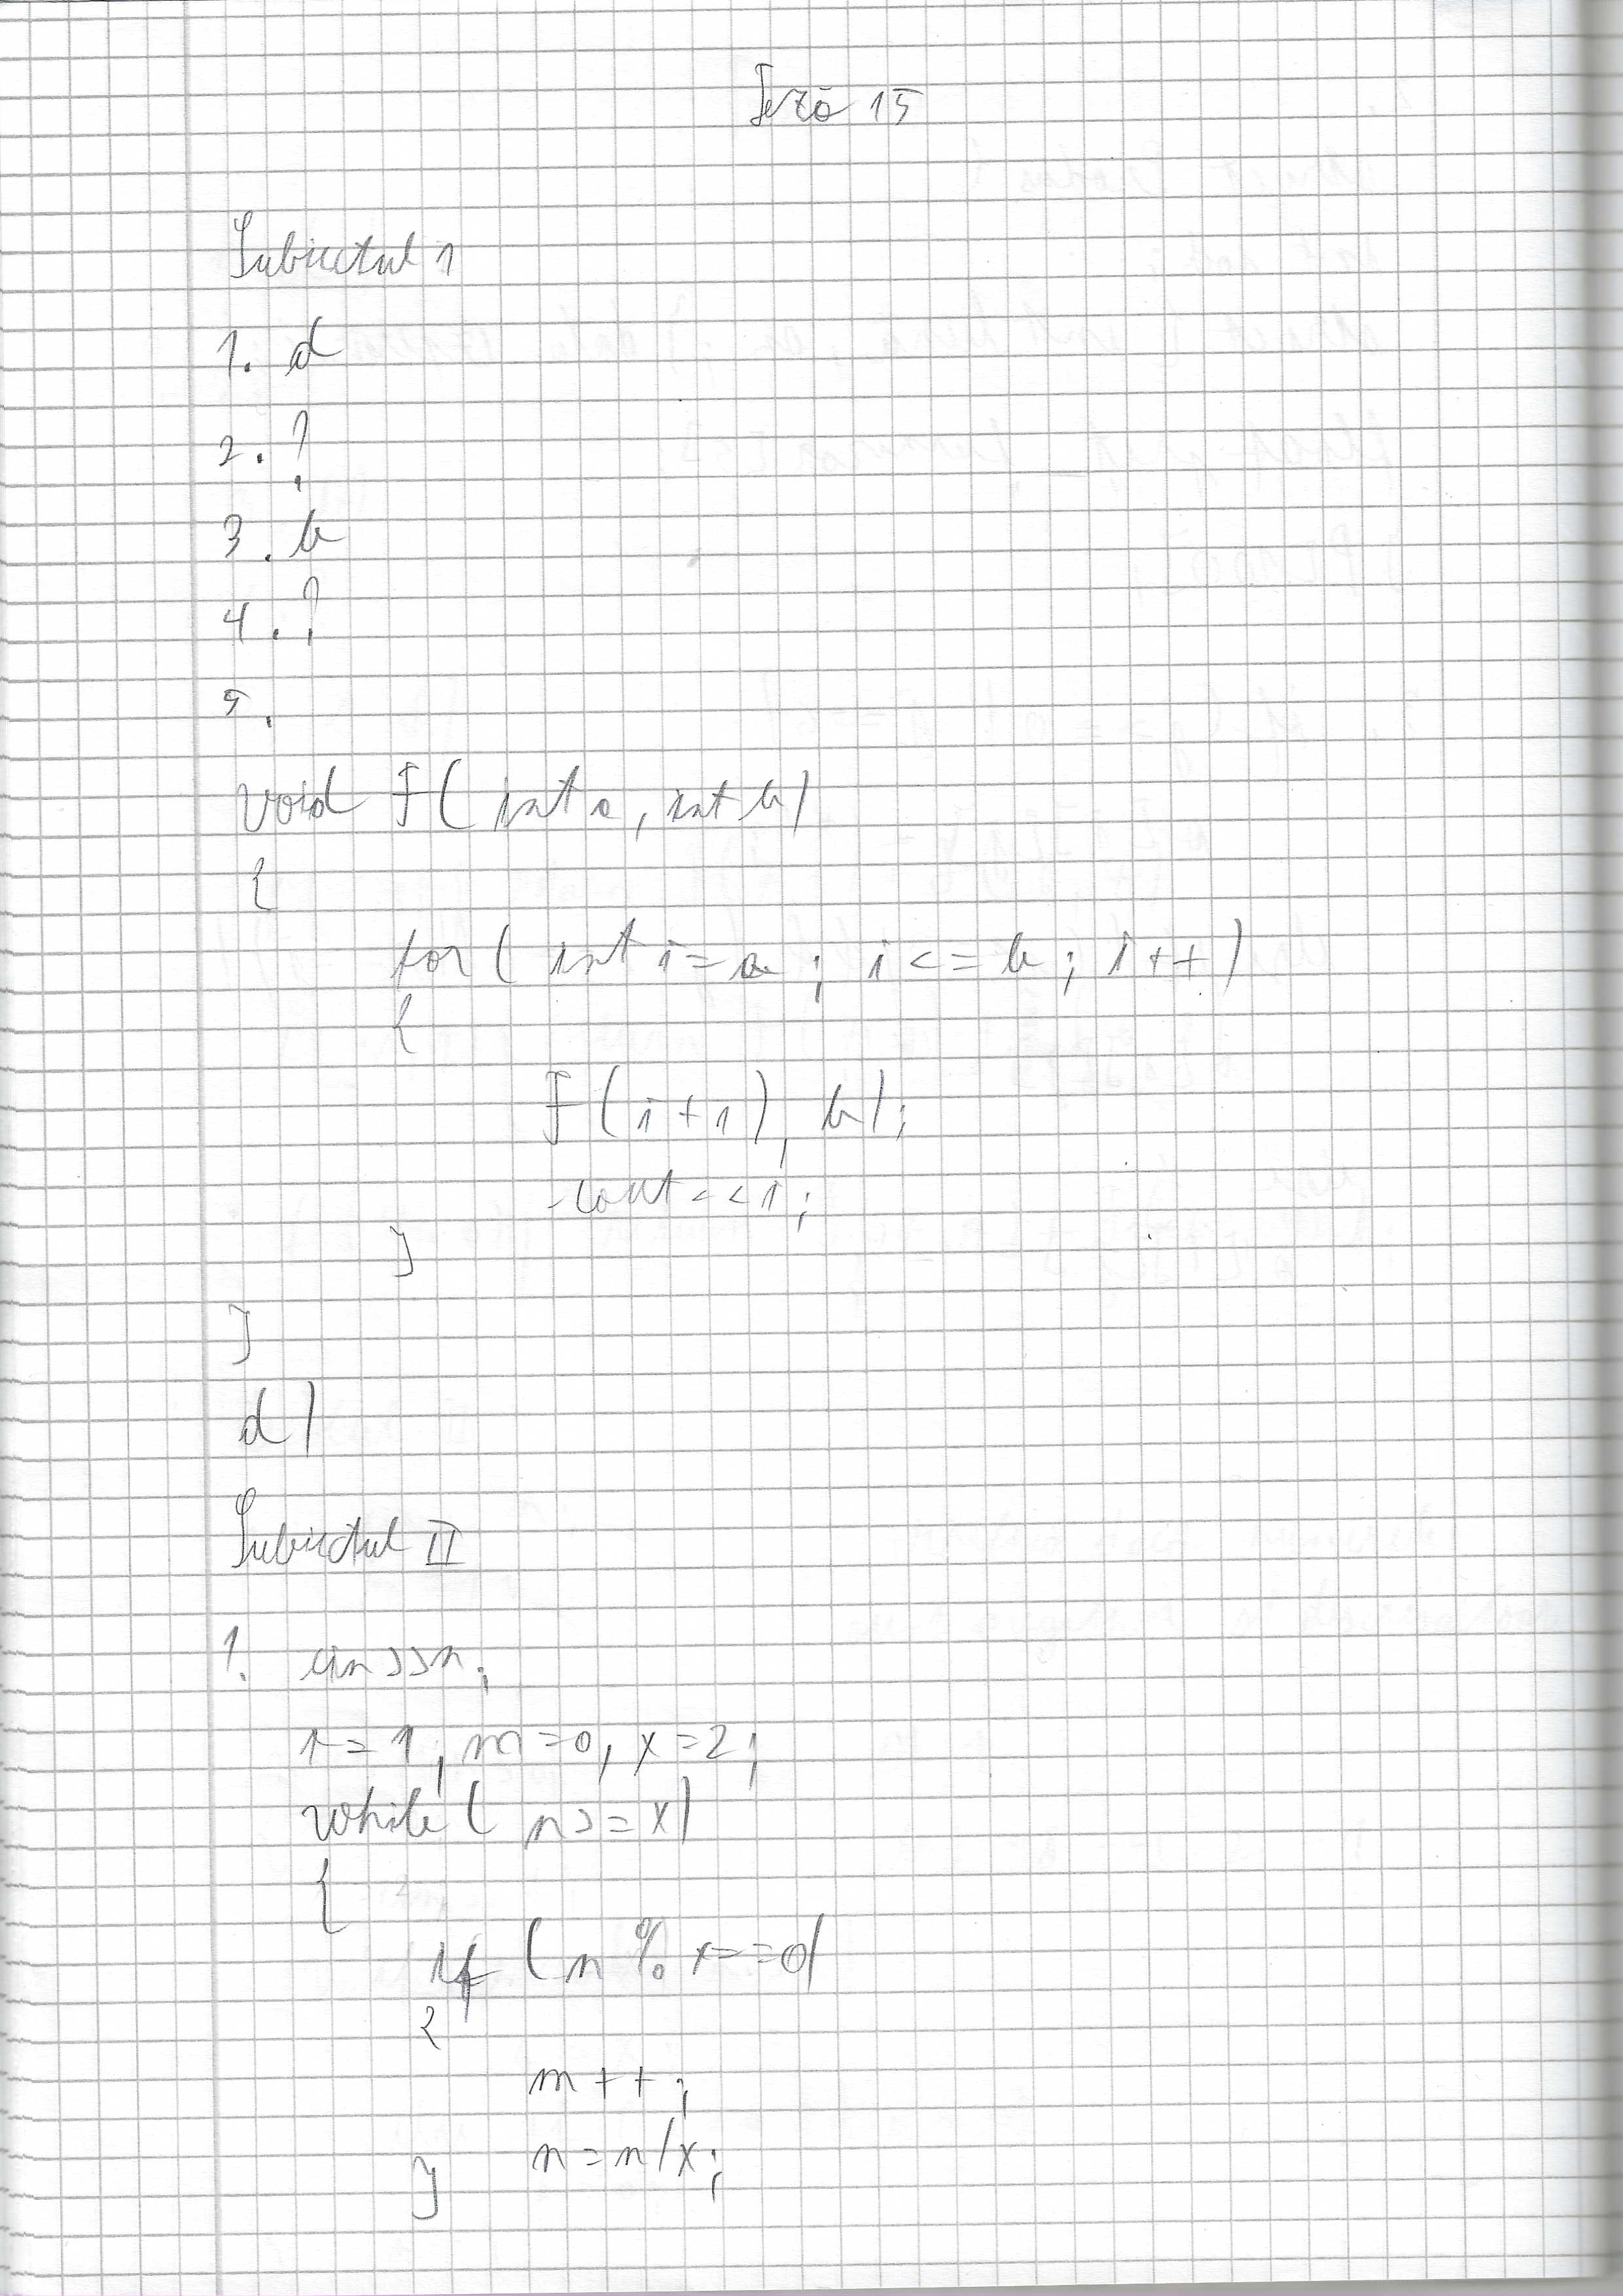 Teză 15
Subiectul 1
1. d
2. ?
3. b
4. ?
5.
void F( int a, int b)
{
for( int i=a ; i<=b ; i++)
{
F(i+1), b);
cout<<i;
}
}
d)
Subiectul II
1. cin>>n;
r=1, m=0, x=2;
while( n>=x)
{
if (n % x==0)
{
m++;
n=n/x;
}